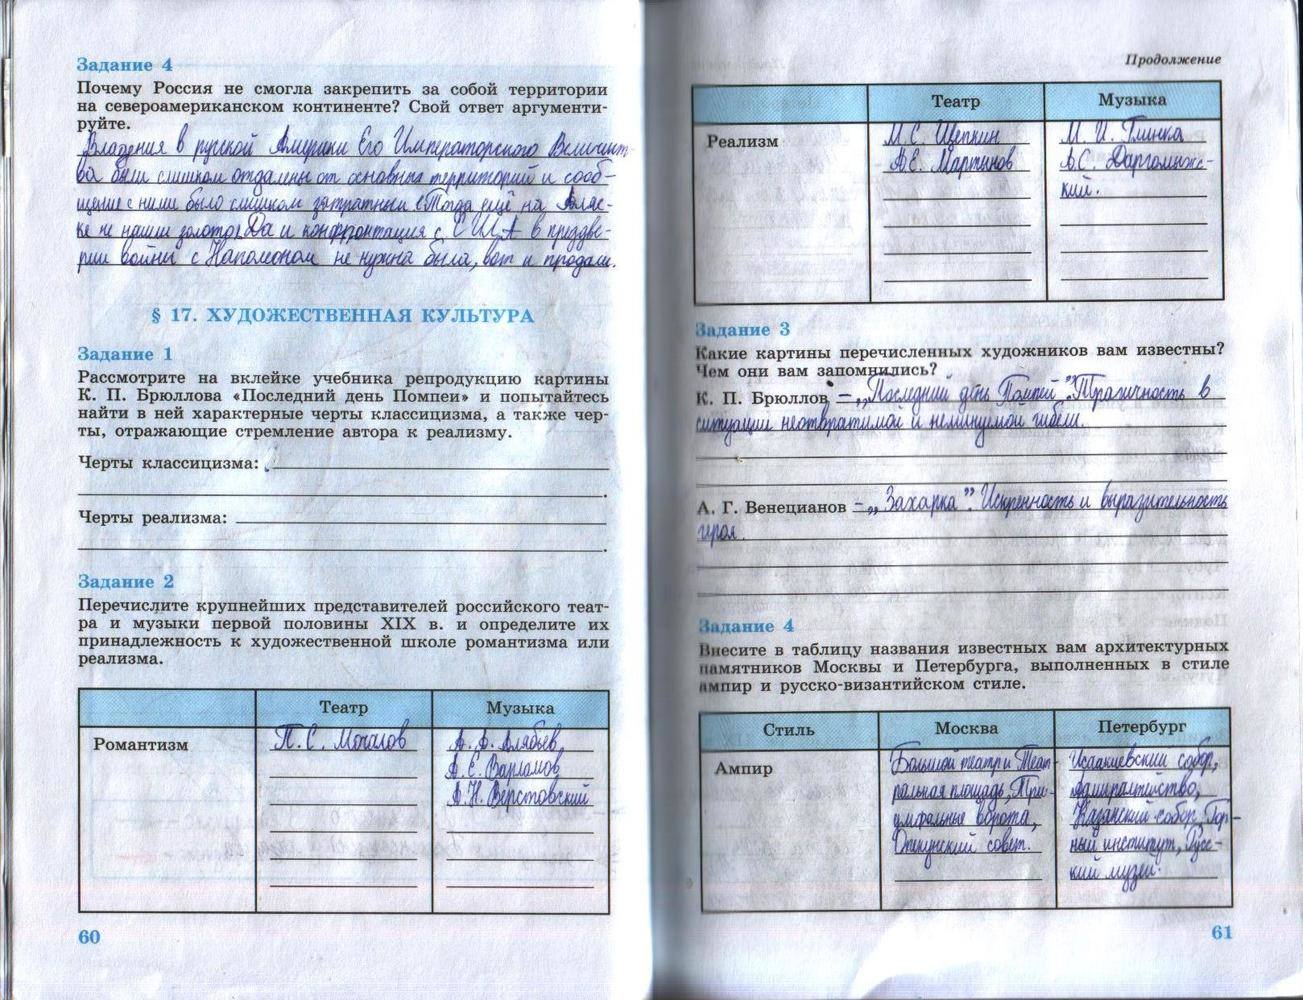 Задание 4
Почему Россия не смогла закрепить за собой территории
на североамериканском континенте? Свой ответ аргументи-
руйте.
Владения в русской Америки Его Императорского Величест-
ва были слишком отдалены от основных территорий и сооб-
щение с ними было слишком затратным. Тогда ещё на Аляс-
ке не нашли золото. Да и конфронтация с США в предве-
рии войны с Наполеоном не нужна была, вот и продали.
§ 17. ХУДОЖЕСТВЕННАЯ КУЛЬТУРА
Задание 1
Рассмотрите на вклейке учебника репродукцию картины
К. П. Брюллова «Последний день Помпеи» и попытайтесь
найти в ней характерные черты классицизма, а также чер-
ты, отражающие стремление автора к реализму.
Черты классицизма:
Черты реализма:
Задание 2
Перечислите крупнейших представителей российского теат-
ра и музыки первой половины XIX в. и определите их
принадлежность к художественной школе романтизма или
реализма.
Театр Музыка
Романтизм П. С. Мочалов А. А. Алябьев,
А. Е. Варламов,
А. Н. Верстовский
60
Продолжение
Театр Музыка
Реализм М. С. Щепкин М. И. Глинка
А. Е. Мартынов А. С. Даргомыжс-
кий.
Задание 3
Какие картины перечисленных художников вам известны?
Чем они вам запомнились?
К. П. Брюллов – „Последний день Помпей". Трагичность в
ситуации неотвратимой и неминуемой гибели.
А. Г. Венецианов – „Захарка". Искренность и выразительность
героя.
Задание 4
Внесите в таблицу названия известных вам архитектурных
памятников Москвы и Петербурга, выполненных в стиле
ампир и русско-византийском стиле.
Стиль Москва Петербург
Ампир Большой театр и Теат- Исаакиевский собор,
ральная площадь, Три- Адмиралтейство,
умфальные ворота, Казанский собор, Гор-
Опекунский совет. ный институт, Русс-
кий музей.
61